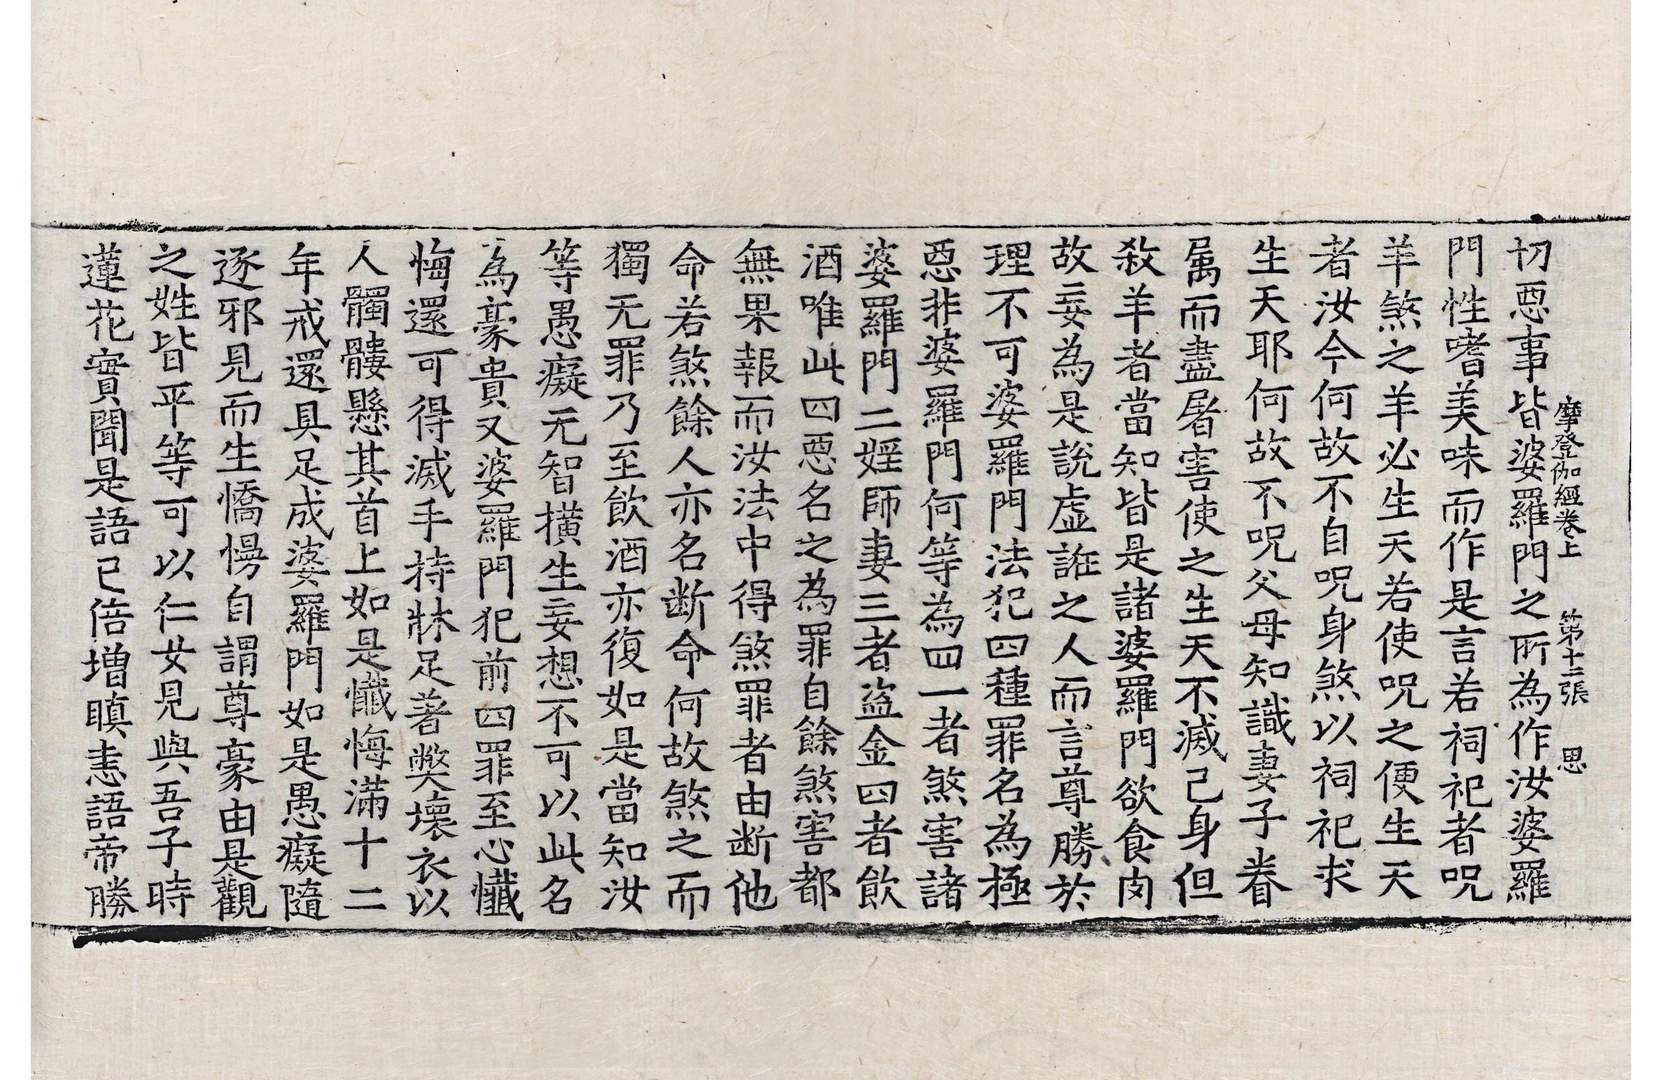 摩登伽經卷上 第十三張 思
切惡事皆婆羅門之所為作汝婆羅
門性嗜美味而作是言若祠祀者呪
羊煞之羊必生天若使呪之便生天
者汝今何故不自呪身煞以祠祀求
生天耶何故不呪父母知識妻子眷
属而盡屠害使之生天不滅己身但
殺羊者當知皆是諸婆羅門欲食肉
故妄為是說虛誑之人而言尊勝於
理不可婆羅門法犯四種罪名為極
惡非婆羅門何等為四一者煞害諸
婆羅門二婬師妻三者盜金四者飲
酒唯此四惡名之為罪自餘煞害都
無果報而汝法中得煞罪者由斷他
命若煞餘人亦名断命何故煞之而
獨无罪乃至飲酒亦復如是當知汝
等愚癡无智橫生妄想不可以此名
為豪貴又婆羅門犯前四罪至心懺
悔還可得滅手持牀足著弊壞衣以
人髑髏懸其首上如是懺悔滿十二
年戒還具足成婆羅門如是愚癡隨
逐邪見而生憍慢自謂尊豪由是觀
之姓皆平等可以仁女見與吾子時
蓮花實聞是語已倍增瞋恚語帝勝